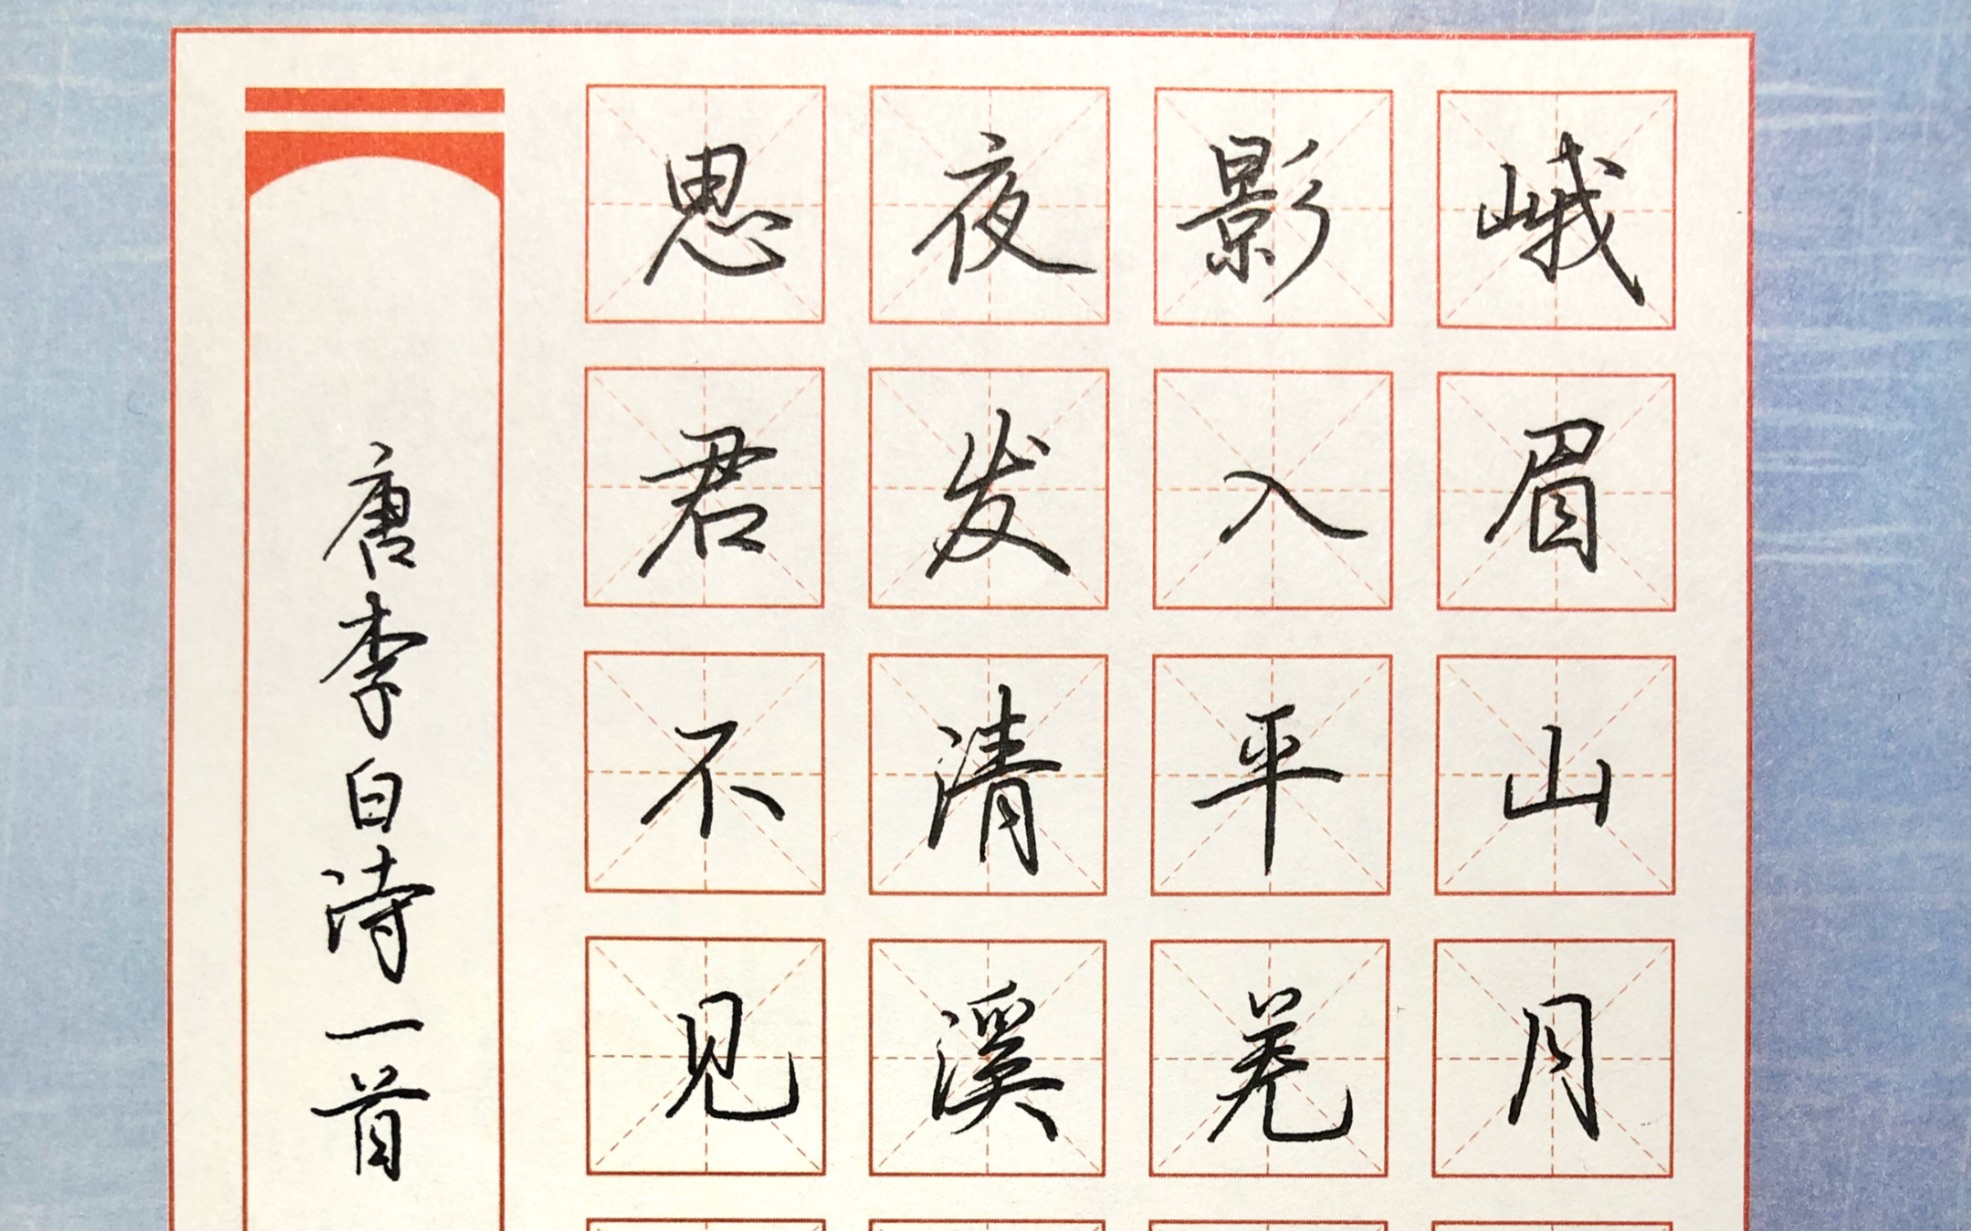 峨眉山月
影入平羌
夜发清溪
思君不见
唐李白诗一首